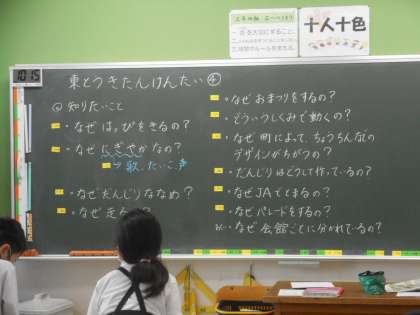 十人十色
10:15
東とつきたんけんたい④
知りたいこと
・なぜ はっぴをきるの？
・なぜ にぎやかなの？
→歌、たいこ、声
・なぜだんじりななめ？
・なぜ 走
・なぜ おまつりをするの？
・どういうしくみで動くの？
・なぜ 町によって、ちょうちんなどの
デザインがちがうの？
・だんじりはどうして作っているの？
・なぜ JAでとまるの？
・なぜ パレードをするの？
・なぜ 会館ごとに分かれているの？